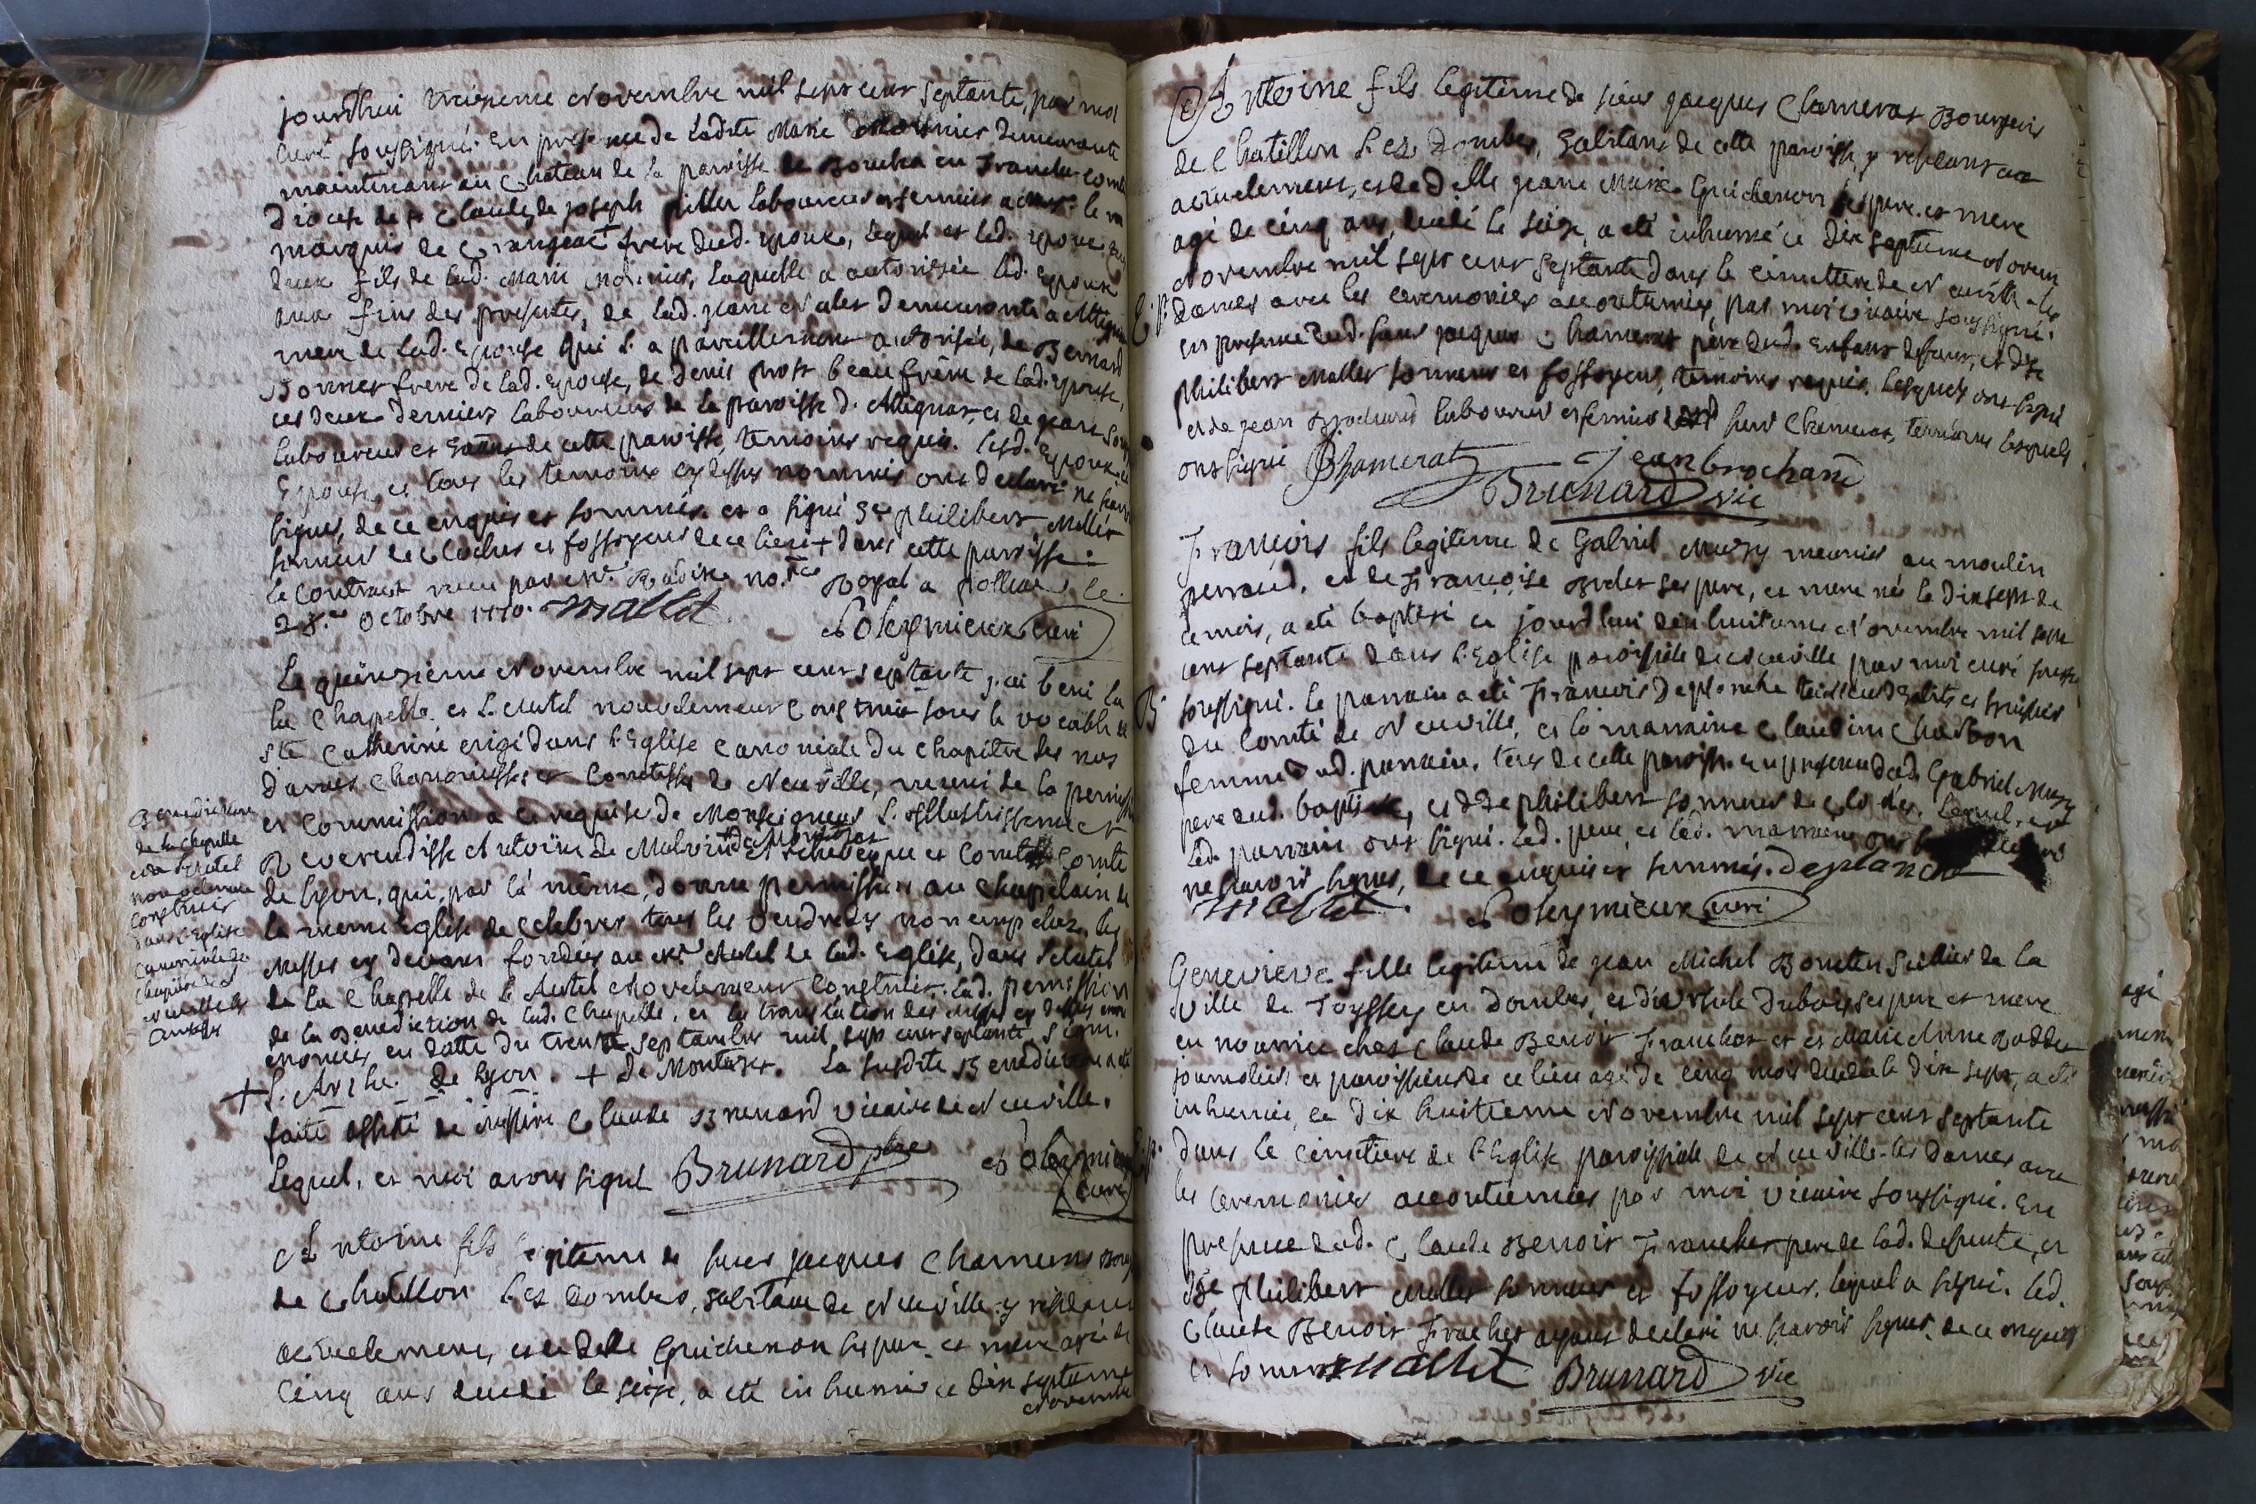 jourdhui treizieme Novembre mil sept cent septante, par moi
curé soussigné. En presence de ladite Marie Monnier demeurante
maintenant au Chateau de la paroisse de en Franche comté
Diocese de St Claude, de joseph pillet laboureur et fermier a le
marquis de Grangeac frere dud. epoux, lequel et led. epoux
deux fils de lad. Marie laquelle a autorisée led. Epoux
aux fins des presentes, de lad. jeanne demeurante a Attignat
mere de lad. Epouse qui l'a pareillement autorisée, de Bernard
Bonnet frere de lad. Epouse, de Denis prost beau frere de lad. epouse,
ces deux derniers laboureurs de la paroisse d'Attignat, et de jean
laboureur et de cette paroisse, temoins requis. lesd. Epoux et
Epouse, et tous les temoins cy dessus nommés ont declaré ne savoir
signer, de ce enquis et sommés. et a signé Sr philibert Mallet
sonneur de Cloches et fossoyeur de ce lieu + dans cette paroisse :
le contract recu par Mr. no.re Royal a polliat le
28.me Octobre 1770. mallet
Poleymieux curé
Le quinzieme Novembre mil sept cent septante j'ai beni la
la Chapelle et l'Autel nouvelement construit sous le vocable de
Ste Catherine erigé dans l'Eglise canoniale du Chapitre des nos
dames Chanoinesses et Comtesses de Neuville, muni de la permission
et Commission a ce requise de Monseigneur L'Illustrissime et
Reverendisse Antoine de Malvin de Montazet Archevêque et Comte
de Lyon, qui, par là même, donne permission au Chapelain de
la meme Eglise de celebrer tous les vendredis non empechez, les
Messes cy devant fondées au Mr. Autel de lad. Eglise, dans l'Autel
de la Chapelle de l'Autel Nouvelement Construit. lad. permission
de la Benediction de lad. Chapelle, et la translation des Messes cy dessus
enoncées, en datte du trente septembre mil sept cent septante, signé.
+ l'Arche. de Lyon. + de Montazet. La susdite Benediction a eté
faite assisté de Messire Claude Brunard vicaire de Neuville.
Lequel, et moi avons signé Brunard ptre Poleymieux
curé
Benediction
de la chapelle
et de l'Autel
nouvelement
construit
dans l'Eglise
canoniale du
chapitre de
neuville les
dames
Antoine fils legitime de sieur jacques Chamerat Bourg
de Chatillon les Dombes, habitant de Neuville y residant
actuelement, et de delle Guichenon ses pere et mere agé de
cinq ans decedé le seize, a eté inhumé ce dix septieme
Novembre
Antoine fils legitime de sieur jacques Chamerat Bourgeois
de Chatillon les Dombes, habitant de cette paroisse, y residant
actuelement, et de delle jeanne Marie Guichenon ses pere et mere
agé de cinq ans, decedé le seize, a eté inhumé ce dix septieme Novem
Novembre mil sept cent septante dans le cimetiere de Neuville-les
Dames avec les ceremonies accoutumées, par moi vicaire soussigné.
en presence dud. sieur jacques Chamerat pere dud. Enfant defunt, et de
philibert Mallet sonneur et fossoyeur, temoins requis. lesquels ont signé
et de jean Brochard laboureur et fermier dud. sieur Chamerat, temoins lesquels
ont signé Chamerat Jean brochard
Brunard vic
François fils legitime de Gabriel Muzy meunier au moulin
perraud, et de Françoise Brdet ses pere, et mere né le dix sept de
ce mois, a eté baptisé ce jourdhui dix huitieme Novembre mil sept
cent septante dans l'Eglise paroissiale de Neuville par moi curé
soussigné. le parrain a eté François Deplanche huissier
du Comté de Neuville, et la marraine Claudine Charbon
femme dud. parrain, tous de cette paroisse. en presence dud. Gabriel Muzy
pere dud. baptisé, et de philibert sonneur de cloches. Lequel, et
led. parrain ont signé. led. pere, et lad. marraine ont declaré
ne savoir signer, de ce enquis et sommés. Deplanche
mallet. Poleymieux curé
Genevieve fille legitime de jean Michel Bourdin sellier de la
ville de Toyssey en Dombes, et d'Ursule Dubois ses pere et mere
en nourrice chez Claude Benoit Franchet et Marie Anne
journaliers et paroissiens de ce lieu agé de cinq mois decedé le dix sept, a eté
inhumée, ce dix huitieme Novembre mil sept cent septante
dans le cimetiere de l'Eglise paroissiale de Neuville-les Dames avec
les ceremonies accoutumées par moi vicaire soussigné. En
presence dud. Claude Benoit Franchet pere de lad. defunte, et
de philibert Mallet sonneur et fossoyeur. lequel a signé. led.
Claude Benoit Franchet ayant declaré ne savoir signer, de ce enquis
et sommé mallet Brunard vic